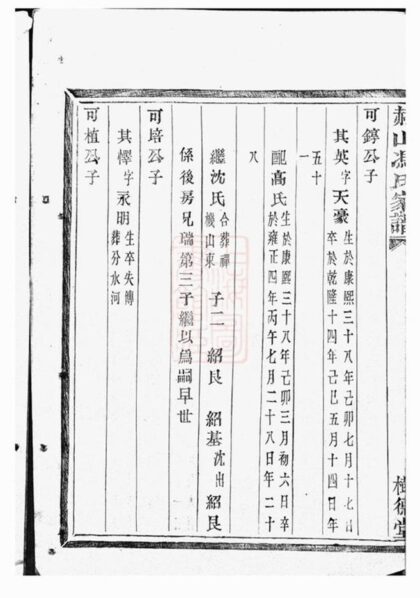 山馮氏家譜
樹德堂
可錞公子
其英字天豪 生於康熙三十八年己卯七月十七日
卒於乾隆十四年己巳五月十四日年
五十
一
配高氏 生於康熙三十八年己卯三月初六日卒
於雍正四年丙午七月二十八日年二十
八
繼沈氏 合葬禪
機山東 子二 紹艮 紹基沈出 紹艮
係後房兄瑞第三子繼以為嗣早世
可培公子
其懌字永明 生卒失傳
葬分水河
可植公子